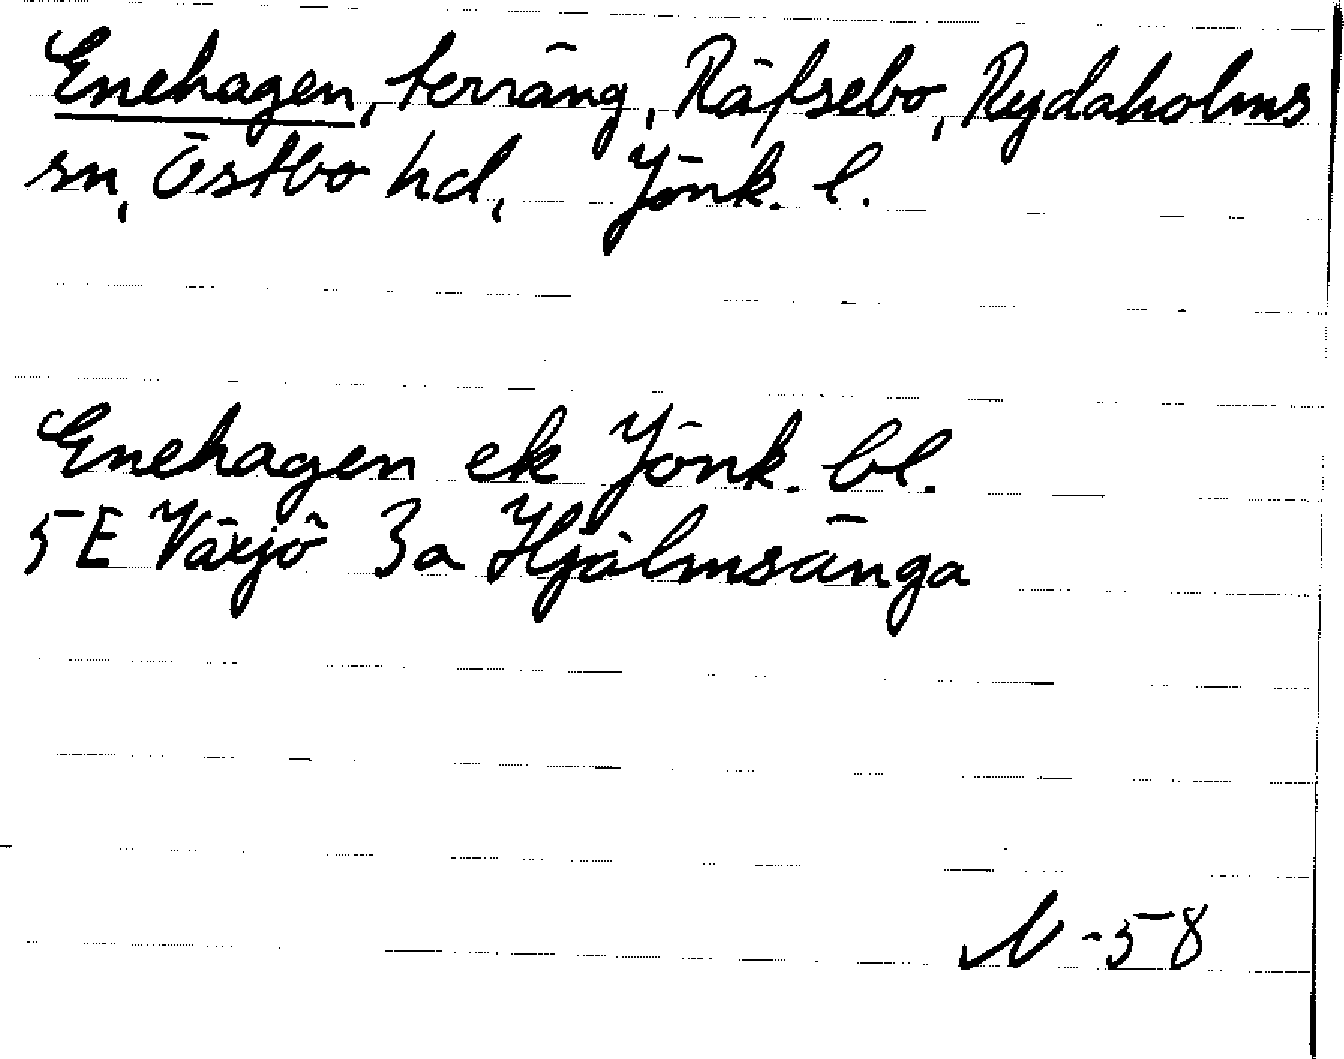 Enehagen, terräng, Räfsebo, Rydaholms
sn, Östbo hd, Jönk. l.
Enehagen ek Jönk. bl.
5E Växjö 3a Hjälmsänga
N-58